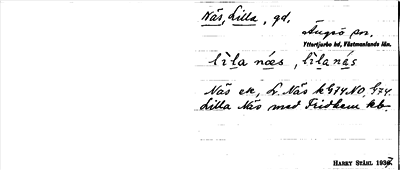 Näs, Lilla, gd.
Ängsö sn.
Yttertjurbo hd, Västmanlands län.
lìla næs, lìlanás
Näs ek, L. Näs k G74 NO, G74.
Lilla Näs med Fridhem kb.
HARRY STÅHL 1937